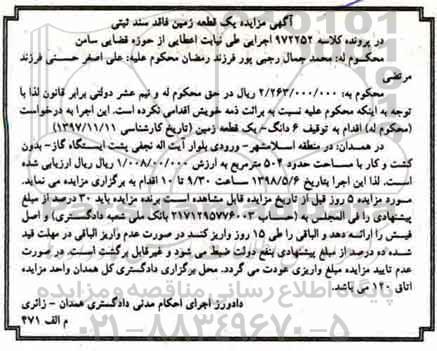 آگهی مزایده یک قطعه زمین فاقد سند ثبتی
در پرونده کلاسه ۹۷۲۲۵۲ اجرایی طی نیابت اعطایی از حوزه قضایی سامن
محکوم له: محمد جمال رجبی پور فرزند رمضان محکوم علیه: علی اصغر حسنی فرزند
مرتضی
محکوم به: ۲/۲۶۳/۰۰۰/۰۰۰ ریال در حق محکوم له و نیم عشر دولتی برابر قانون لذا با
توجه به اینکه محکوم علیه نسبت به برائت ذمه خویش اقدامی نکرده است. این اجرا به درخواست
(محکوم له) اقدام به توقیف ۶ دانگ- یک قطعه زمین (تاریخ کارشناسی ۱۳۹۷/۱۱/۱۱)
در همدان: در منطقه اسلامشهر- ورودی بلوار آیت اله نجفی پشت ایستگاه گاز- بدون
کشت و کار با مساحت حدود ۵۰۴ مترمربع به ارزش ۱/۰۰۸/۰۰/۰۰۰ ریال ریال ارزیابی شده
است. لذا این اجرا بتاریخ ۱۳۹۸/۵/۶ ساعت ۹/۳۰ تا ۱۰ اقدام به برگزاری مزایده می نماید.
مورد مزایده ۵ روز قبل از تاریخ مزایده قابل مشاهده است. برنده مزایده باید ۳۰ درصد از مبلغ
پیشنهادی را فی المجلس به (حساب ۲۱۷۱۲۹۵۷۷۶۰۰۳ بانک ملی شعبه دادگستری) و اصل
فیش را ارائه دهد و الباقی را طی ۱۵ روز واریز کند در صورت عدم واریز الباقی در مهلت قید
شده ده درصد از مبلغ پیشنهادی بنفع دولت ضبط می شود و غیرقابل برگشت است. در صورت
عدم تایید مزایده مبلغ واریزی عودت می گردد. محل برگزاری دادگستری کل همدان واحد مزایده
اتاق ۱۲۰ می باشد.
دادورز اجرای احکام مدنی دادگستری همدان - زائری
م الف ۴۷۱
پایگاه اطلاع رسانی مناقصه و مزایده
۰۲۱-۸۸۳۴۹۶۷۰-۵